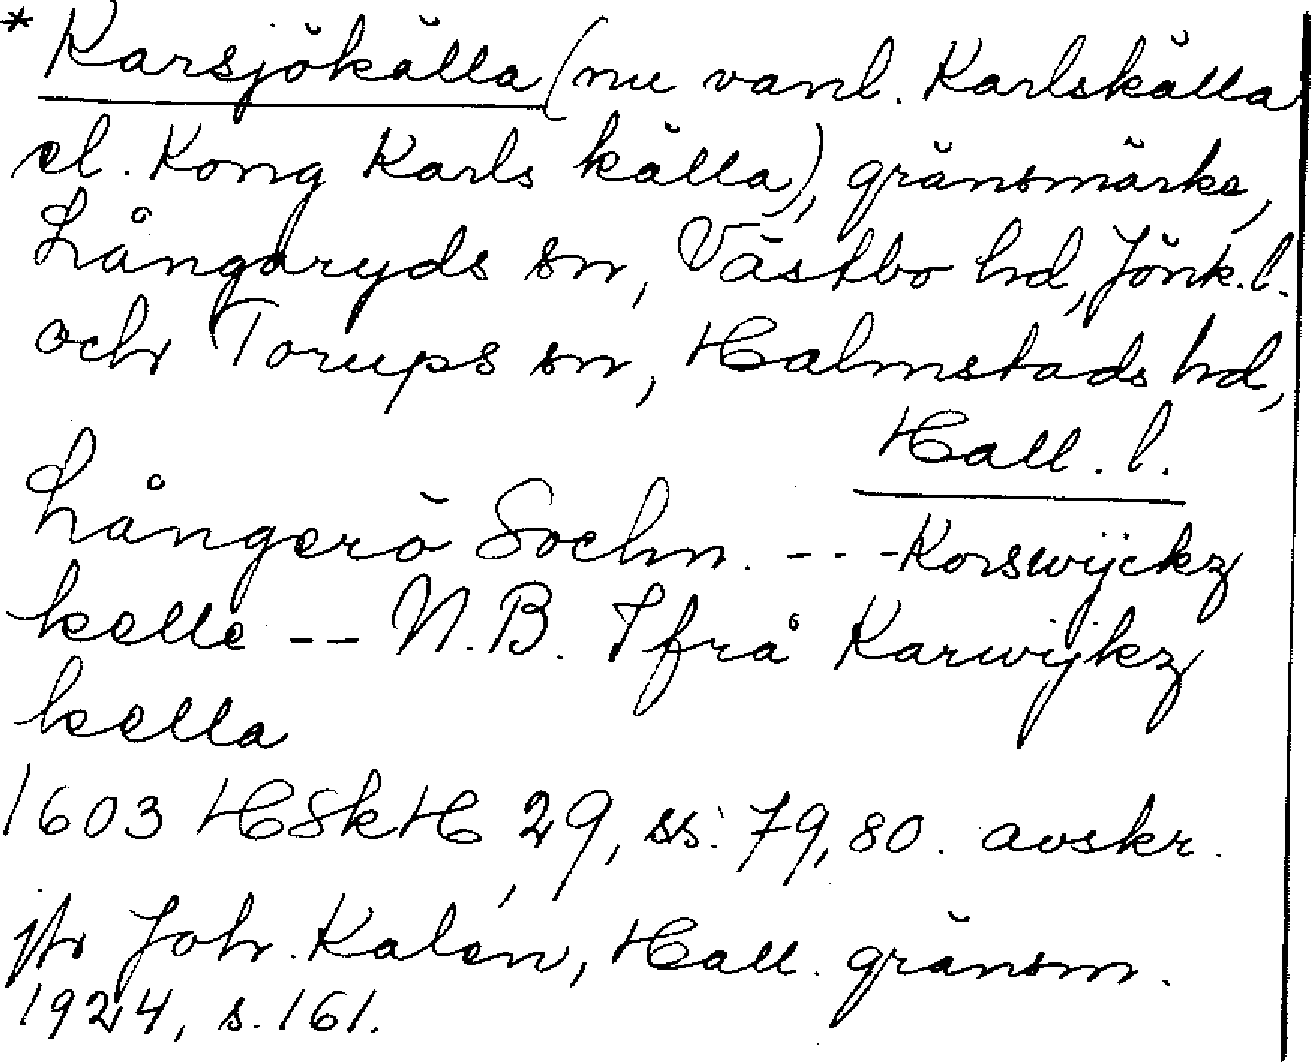 * Karsjökälla (nu vanl. Karlskälla
el. Kong Karls källa), gränsmärke,
Långaryds sn, Västbo hd, Jönk. l.
och Torups sn, Halmstads hd,
Hall. l.
Långerö Sochn. --- Korswijckz
kelle -- N.B. Ifrå Karwijkz
kella
1603 HSkH, 29, ss. 79, 80. avskr.
jfr Joh. Kalén, Hall. gränsm.
1924, s. 161.